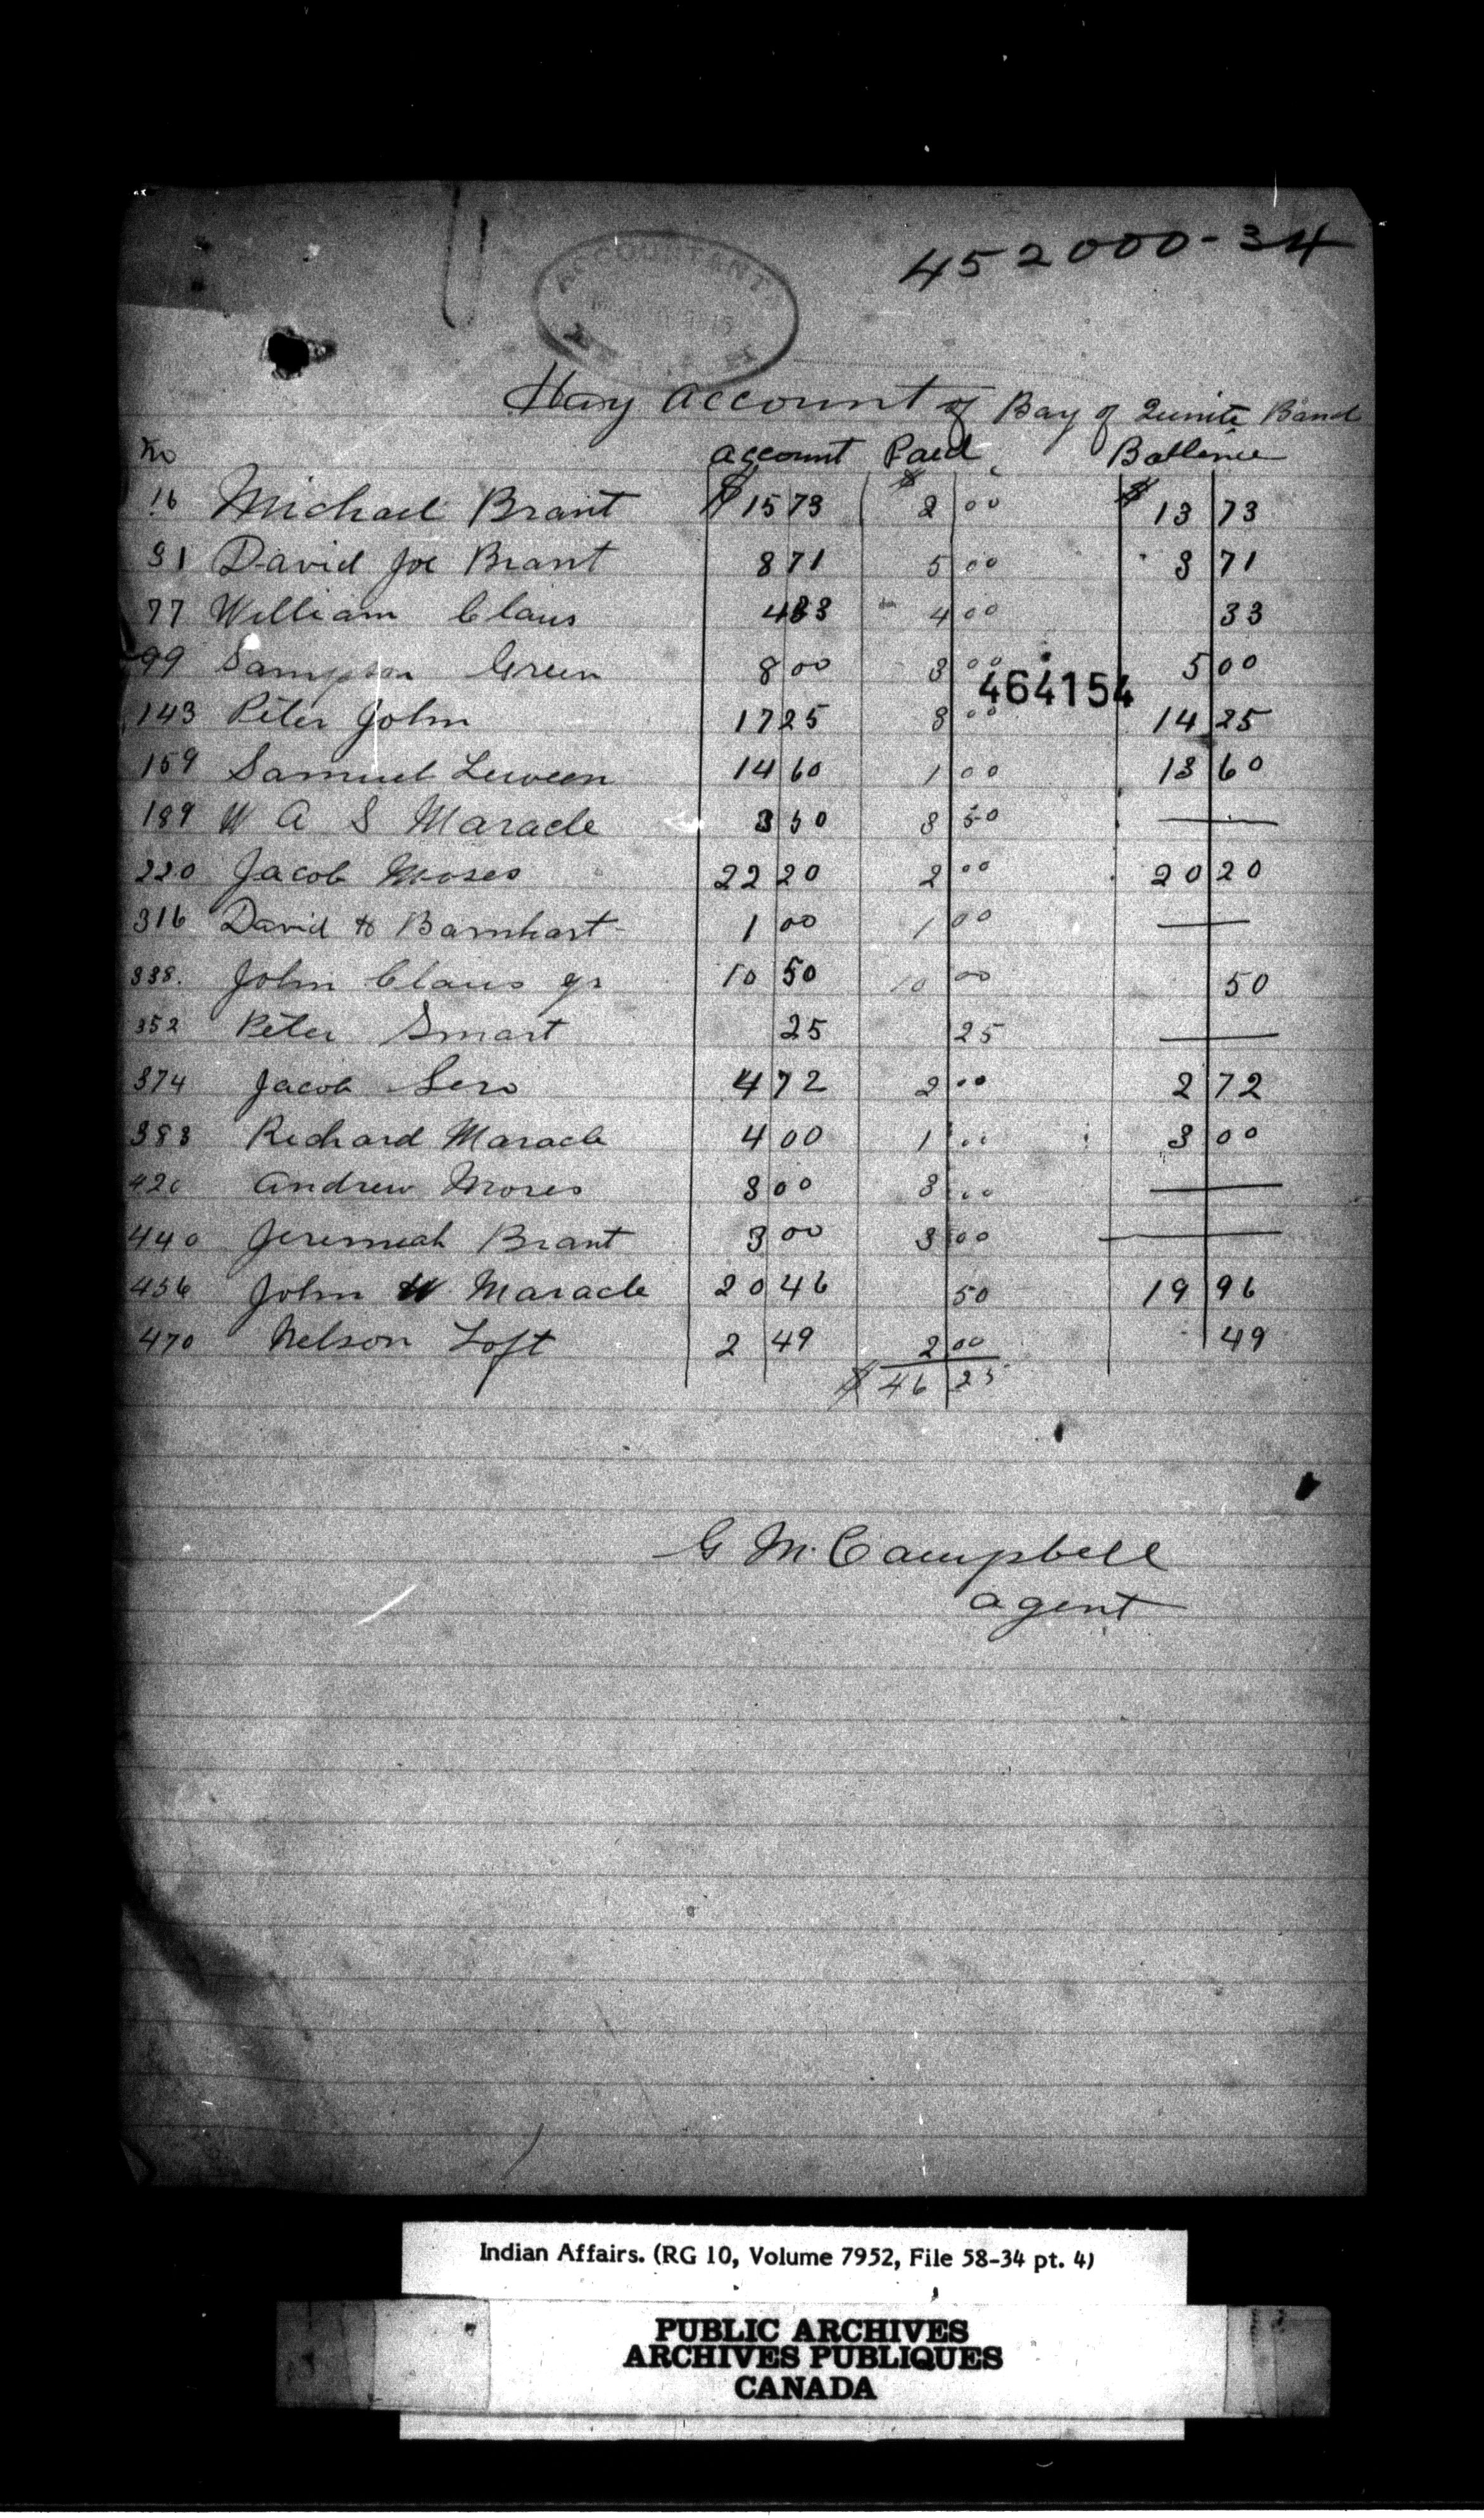 452000-34
ACCOUNTANT
Hay account of Bay of Quinte Band
No account Paid Ballence
16 Michael Brant $ 15 73 $ 2 00 $ 13 73
31 David Joe Brant 8 71 5 00 3 71
77 William Claus 4 33 4 00 33
99 Sampson Green 8 00 3 00 5 00
464154
143 Peter John 17 25 3 00 14 25
159 Samuel Leween 14 60 1 00 13 60
189 W A S Maracle 3 50 3 50 —
220 Jacob Moses 22 20 2 00 20 20
316 David H Barnhart 1 00 1 00 —
338. John Claus Jr 10 50 10 00 50
352 Peter Smart 25 25 —
374 Jacob Sero 4 72 2 00 2 72
383 Richard Maracle 4 00 1 00 3 00
420 Andrew Moses 3 00 3 00 —
440 Jeremiah Brant 3 00 3 00 —
456 John W Maracle 20 46 50 19 96
470 Nelson Loft 2 49 2 00 49
$ 46 25
G M. Campbell
agent
Indian Affairs. (RG 10, Volume 7952, File 58-34 pt. 4)
PUBLIC ARCHIVES
ARCHIVES PUBLIQUES
CANADA